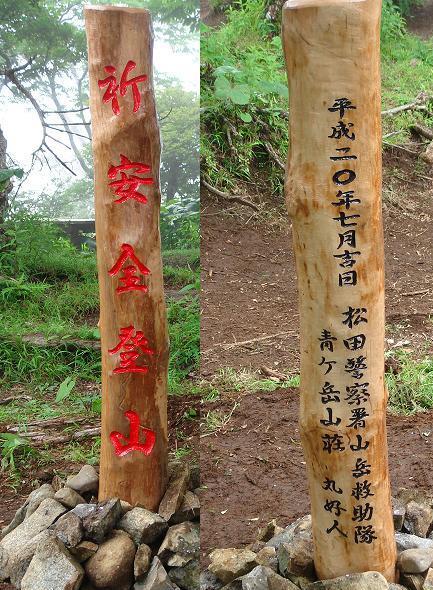 祈安全登山
平成二〇年七月吉日
松田警察署山岳救助隊
青ケ岳山荘 丸好人